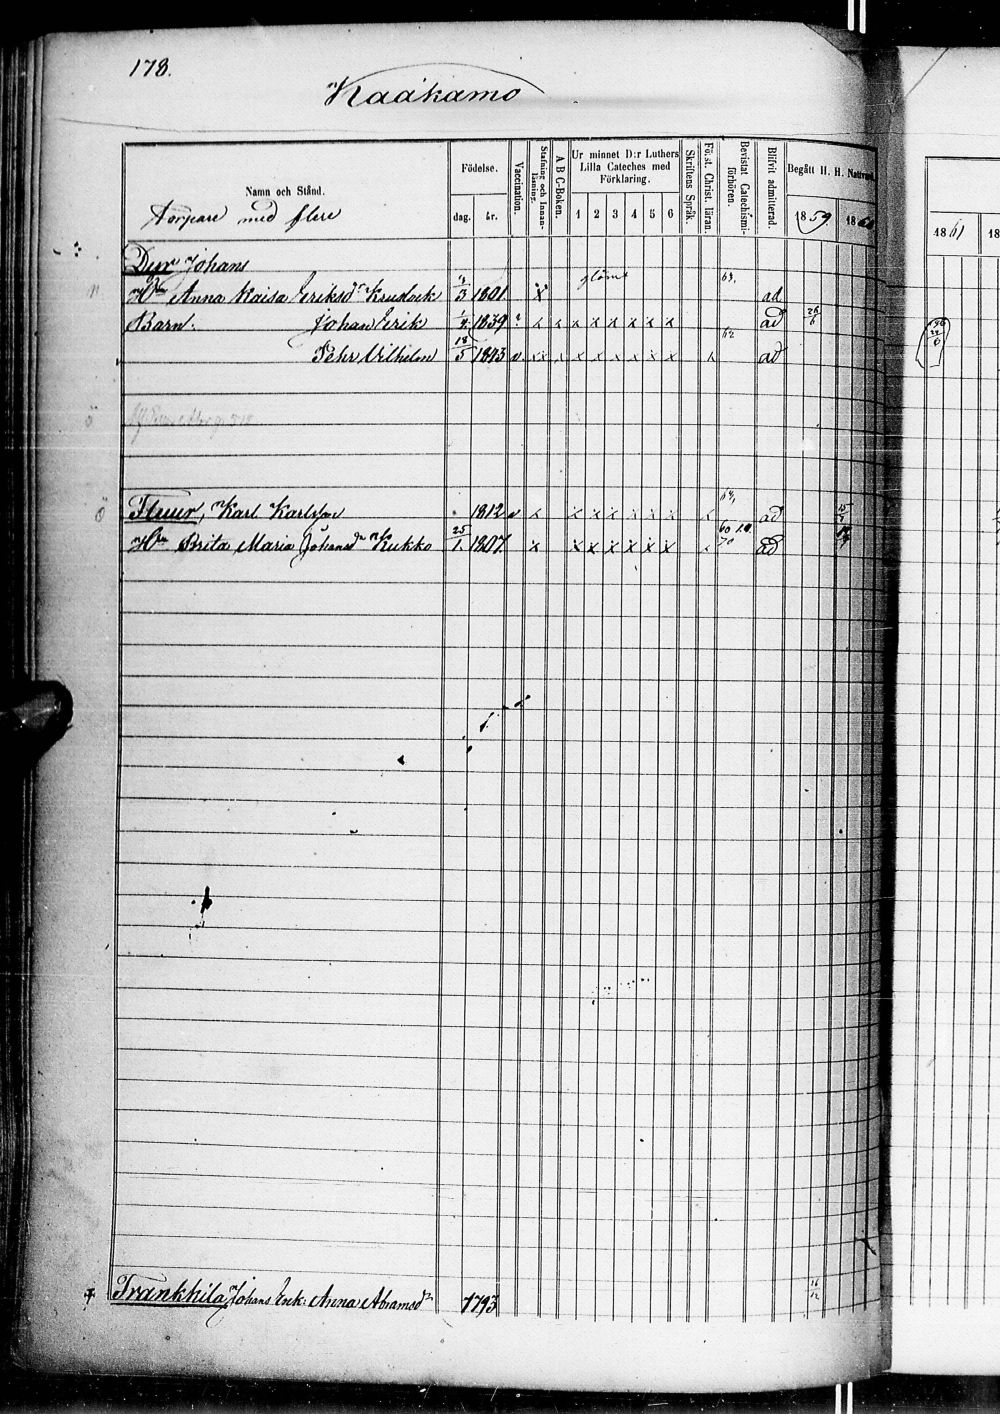 178.
Kaakamo
Namn och Stånd.
Torpare med flere
Födelse.
dag. år.
Vaccination.
Stafning och Innanläsning.
A B C-Boken.
Ur minnet D:r Luthers Lilla Cateches med Förklaring.
1 2 3 4 5 6
Skriftens Språk.
Först. Christ. läran.
Bevistat Catechismiförhören.
Blifvit admitterad.
Begått H. H. Nattvard
1859. 1860
1861 18
Johans
Anna Kaisa Eriksd:r 3 1801 x glömt 63. ad
Barn: Johan Erik 1839 x x x x x x x x ad 26/6
Pehr Vilhelm 18/5 1843 v. x x x x x x x x x 62 ad
Fluur, Karl Karlsson 1812 v x x x x x x x x ad
Brita Maria Johansd:r Kukko 25/1. 1807. x x x x x x x 60 70 ad
Frankkila, Johans Enk: Anna Abramsd:r 1793 16/12